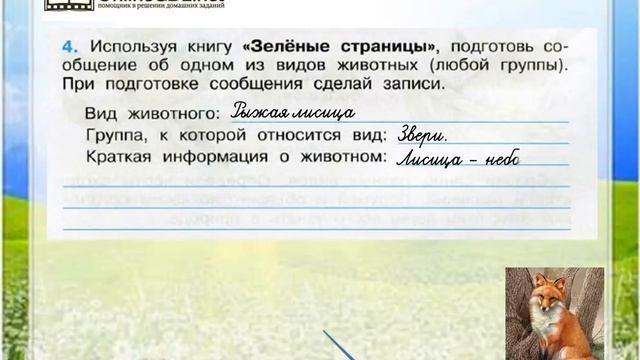 помощник в решении домашних заданий
4. Используя книгу «Зелёные страницы», подготовь со-
общение об одном из видов животных (любой группы).
При подготовке сообщения сделай записи.
Вид животного: Рыжая лисица
Группа, к которой относится вид: Звери.
Краткая информация о животном: Лисица – небо